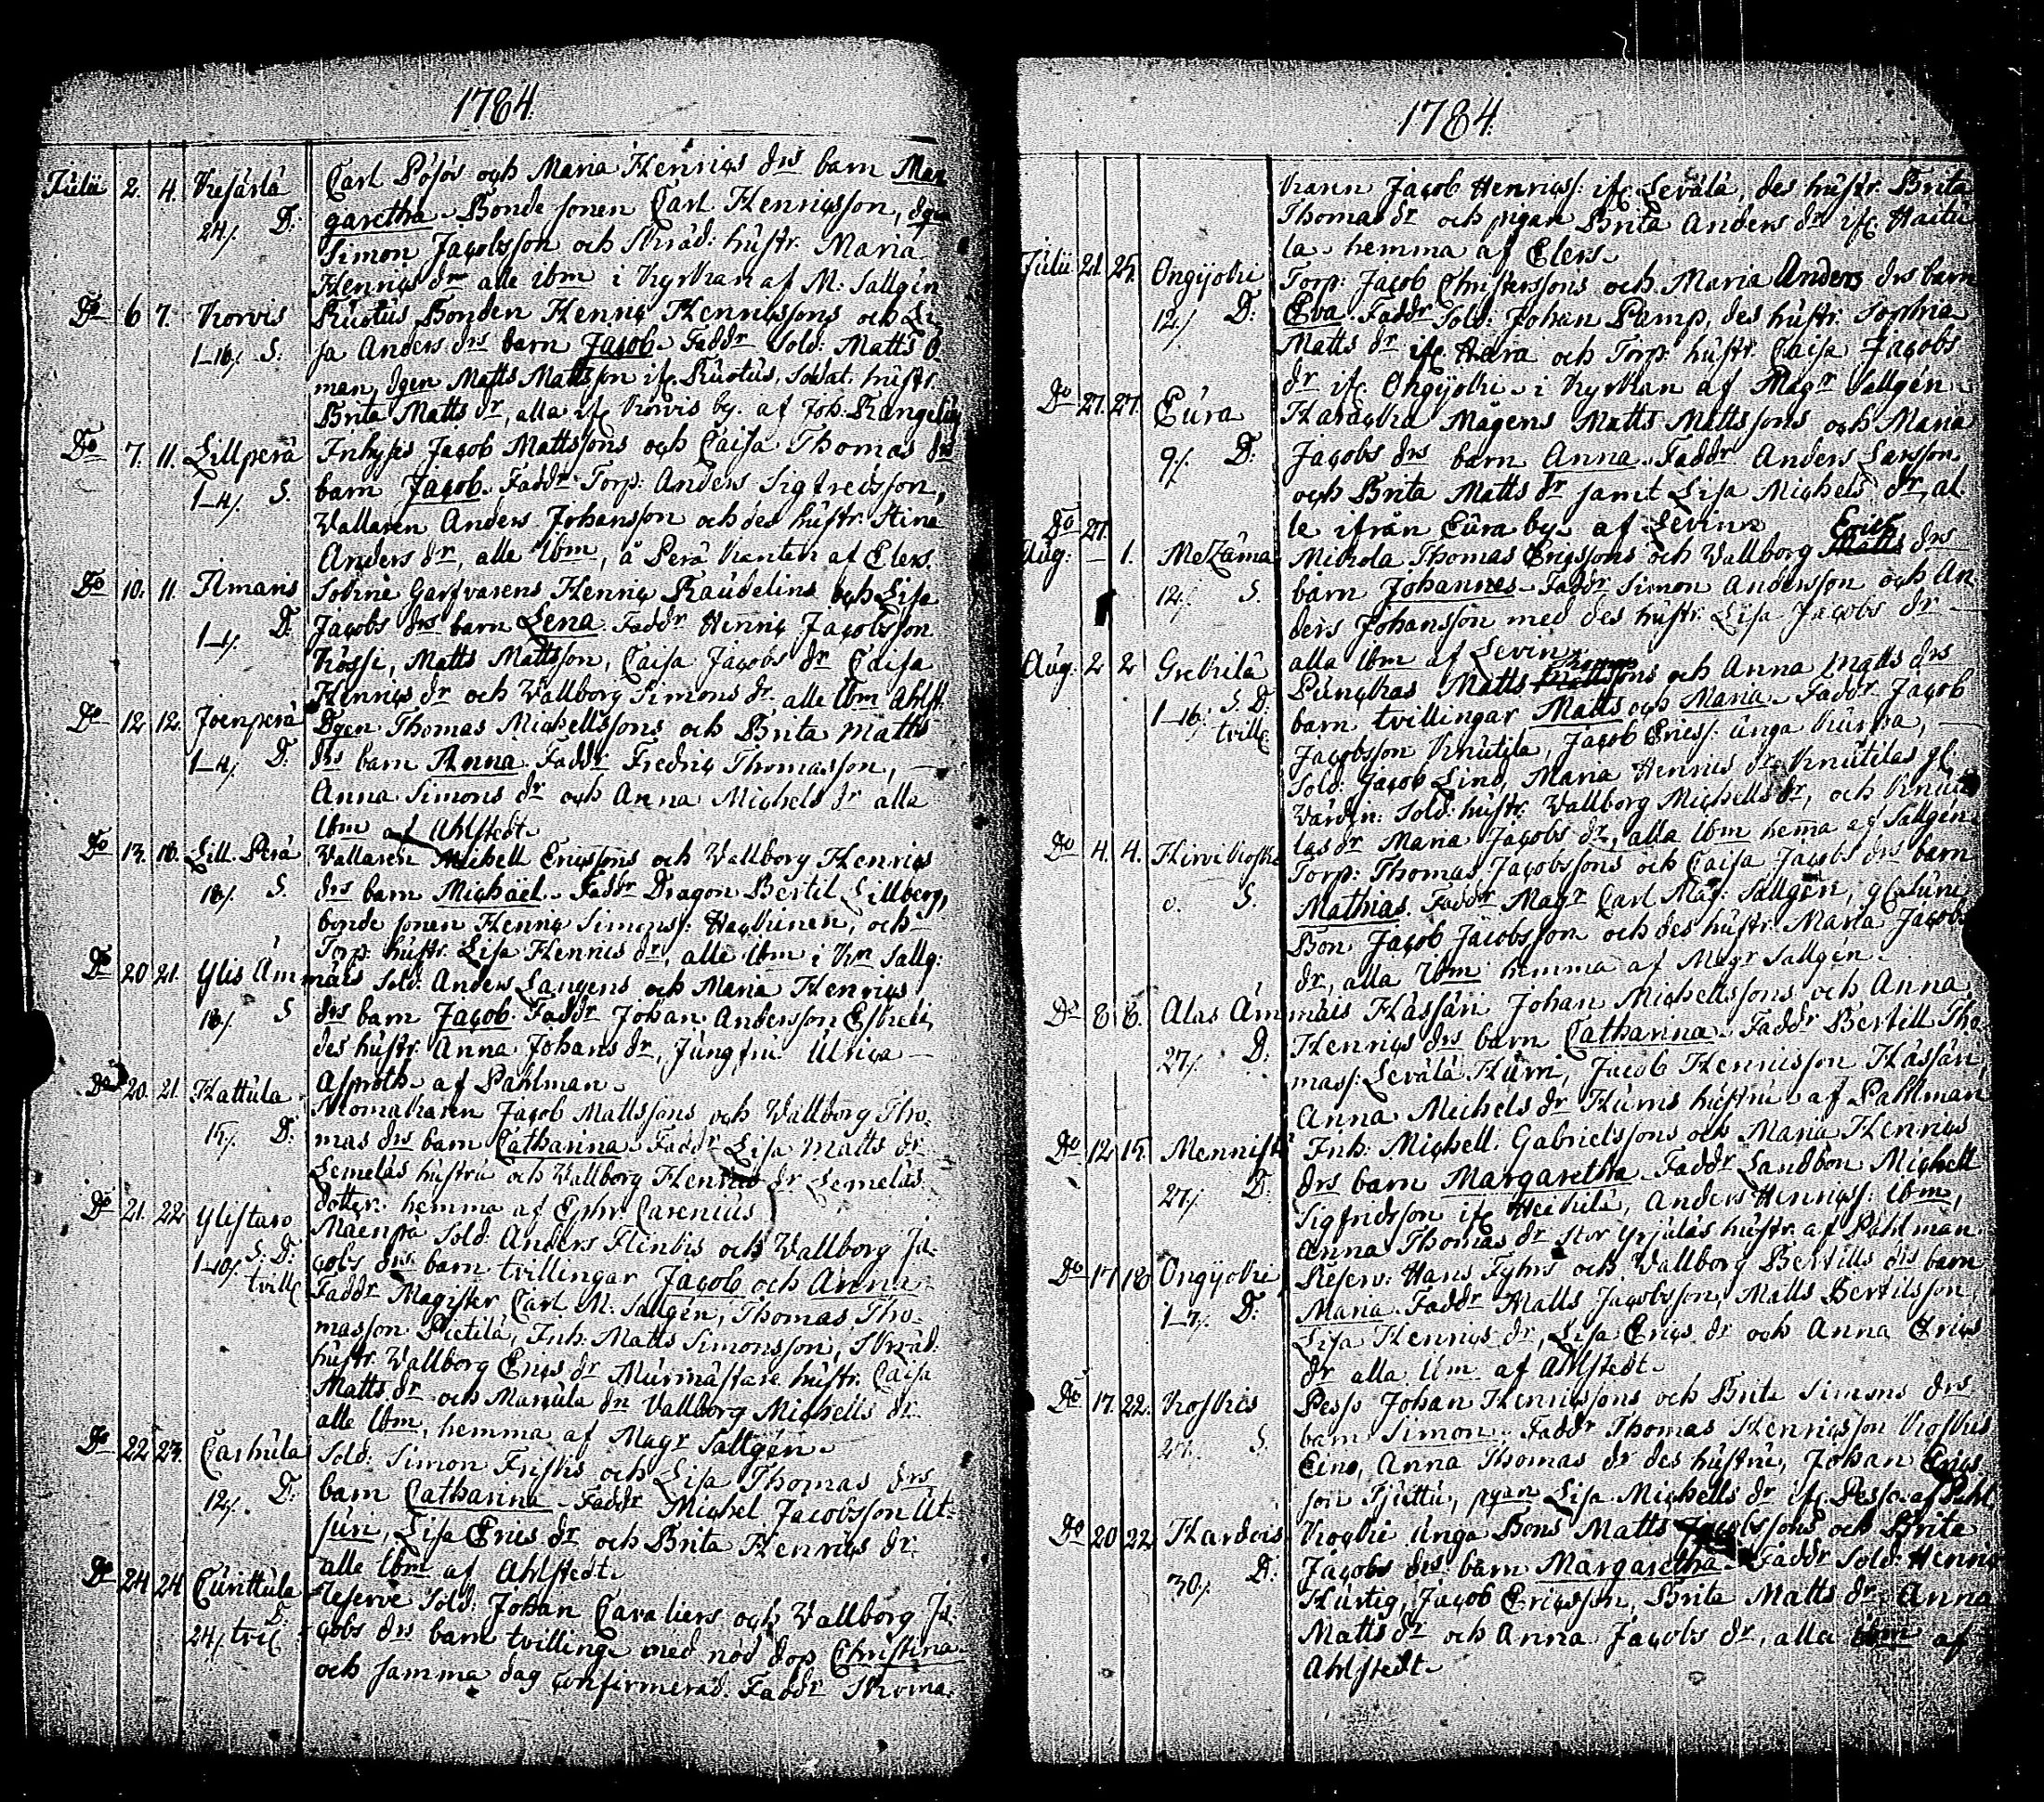 1784.
Julii 2. 4. Kesärlä Carl Pösös och Maria Henrics drs barn Mar
24/. D: garetha. Bonde sonen Carl Henricsson, dgen
Simon Jacobsson och Skräd: hustr. Maria
Henrics dr alle ibm i Kyrkan af M: Sallgén
Do 6 7. Korvis Ruotus Bonden Henric Henricssons och Li
1–16/. S: sa Anders drs barn Jacob. Faddr Sold: Matts Ö
man, dgen Matts Mattsson if. Ruotus, Soldat. hustr.
Brita Matts dr, alla if. Korvis by. af Joh.
Do 7. 11. Lillperä Inhyses Jacob Mattssons och Caisa Thomas drs
1–4/. S. barn Jacob. Faddr Torp: Anders Sigfredsson,
Vallaren Anders Johansson och des hustr. Stina
Anders dr, alle ibm, å Perä Kanten af Elers.
Do 10. 11. Ilmaris Garfvarens Henric Raudelins och Lisa
1–4/. D: Jacobs drs barn Lena. Faddr Henric Jacobsson
Kössi, Matts Mattsson, Caisa Jacobs dr Caisa
Henrics dr och Wallborg Simons dr. alle ibm Ahlst.
Do 12. 12. Joenperä Dgen Thomas Michellssons och Brita Matts
1–4/. D: drs barn Anna. Faddr Fredric Thomasson,
Anna Simons dr och Anna Michels dr alla
ibm af Ahlstedt.
Do 13. 18. Lill. Perä Vallaren Michell Ericssons och Wallborg Henrics
18/. S drs barn Michaël. Faddr Dragon Bertil Lillberg,
bonde sonen Henric Simonss: Heickinen, och
Torp: hustr. Lisa Henrics dr, alle ibm i Kn Sallg:
Do 20 21. Ylis Ämmäis Sold: Anders Langens och Maria Henrics
18/. S drs barn Jacob. Faddr Johan Andersson
des hustr. Anna Johans dr, Jungfru Ulrica
Asproth. af Pahlman.
Do 20. 21. Hattula Jacob Mattssons och Wallborg Tho-
15/. D: mas drs barn Catharina. Faddr Lisa Matts dr
Lemeläs hustru och Wallborg Henrics dr Lemeläs
dotter. hemma af Ephr Carenius
Do 21. 22 Ylistaro Maenpä Sold: Anders Flinkis och Wallborg Ja-
1–10/. S. D: cobs drs barn tvillingar Jacob och Anna.
tvill. Faddr Magister Carl M. Sallgén, Thomas Tho-
masson Pietilä, Inh. Matts Simonsson, Skräd:
hustr. Wallborg Erics dr Murmästare hustr. Caisa
Matts dr och Marttila dr Wallborg Michells dr
alle ibm, hemma af Magr Sallgén.
Do 22 23. Carhula Sold: Simon Friskis och Lisa Thomas drs
12/. D: barn Catharina. Faddr Michel Jacobsson Ut-
juri, Lisa Erics dr och Brita Henrics dr
alle ibm af Ahlstedt.
Do 24 24 Curittula Reserve Sold: Johan Cavaliers och Wallborg Ja-
24/. D. cobs drs barn tvilling med nöd döp Christina
och samma dag confirmerad. Faddr

1784.
Jacob Henricss: if. Levälä, des hustr. Brita
Thomas dr och pigan Brita Anders dr if. Haitu
la. hemma af Elers.
Julii 21. 25. Ongijoki Torp: Jacob Christerssons och Maria Anders drs barn
12/. D: Eva. Faddr Sold: Johan Pamp, des hustr. Sophia
Matts dr if. Hara och Torp: hustr. Caisa Jacobs
dr if. Ongijoki. i Kyrkan af Magr Sallgén.
Do 27. 27. Eura Harackka Mågens Matts Mattssons och Maria
9/. D: Jacobs drs barn Anna. Faddr Anders Larsson
och Brita Matts dr samt Lisa Michels dr, al-
le ifrån Eura by. af Levin.
Do 27. Erics
Aug: – 1. Mezämä Mickola Thomas Ericssons och Wallborg Matts drs
12/. S. barn Johannes. Faddr Simon Andersson och An-
ders Johansson med des hustr. Lisa Jacobs dr
alla ibm af Levin.
Aug: 2 2 Grekilä Matts Mattssons och Anna Matts drs
1–16/. S. D: barn tvillingar Matts och Maria. Faddr Jacob
tvill. Jacobsson Knutila, Jacob Ericss. unga
Sold: Jacob Lind, Maria Henrics dr Knutilas gl
Värdin: Sold: hustr. Wallborg Michells dr, och Knuti
las dr Maria Jacobs dr, alla ibm hemma af Sallgén
Do 4. 4. Hirvikoski Torp: Thomas Jacobssons och Caisa Jacobs drs barn
S. Mathias. Faddr Magr Carl Mag: Sallgén,
Bon. Jacob Jacobsson och des hustr. Maria Jacobs
dr, alla ibm hemma af Magr Sallgén.
Do 8 8. Alas Ämmäis Hassäri Johan Michellssons och Anna
27/. D: Henrics drs barn Catharina. Faddr Bertill Tho-
mass: Levälä Hurri, Jacob Henricsson Hassäri,
Anna Michels dr Hurris hustru. af Pahlman
Do 12 15. Mennist Inh. Michell Gabrielssons och Maria Henrics
27/. D: drs barn Margaretha. Faddr Landbon Michell
Sigfridsson if. Heikilä, Anders Henricss: ibm,
Anna Thomas dr Stor hustr. af Pahlman.
Do 17 18 Ongijoki Reserv: Hans Fyhrs och Wallborg Bertills drs barn
1–7/. D: Maria. Faddr Matts Jacobsson, Matts Bertilsson,
Lisa Henrics dr, Lisa Erics dr och Anna Erics
dr alla ibm af Ahlstedt.
Do 17. 22. Koskis Pesss Johan Henricssons och Brita Simons drs
S. barn Simon. Faddr Thomas Henricsson Koskis
Eino, Anna Thomas dr des hustru, Johan Erics
son Tjuttu, pgan Lisa Michells dr if. Pesso. af Pahl
Do 20 22 Kardois Kocki unga Bons Matts Jacobssons och Brita
30/. D: Jacobs drs barn Margaretha. Faddr Sold: Henric
Hurtig, Jacob Ericsson, Brita Matts dr Anna
Matts dr och Anna Jacobs dr, alla ibm af
Ahlstedt.